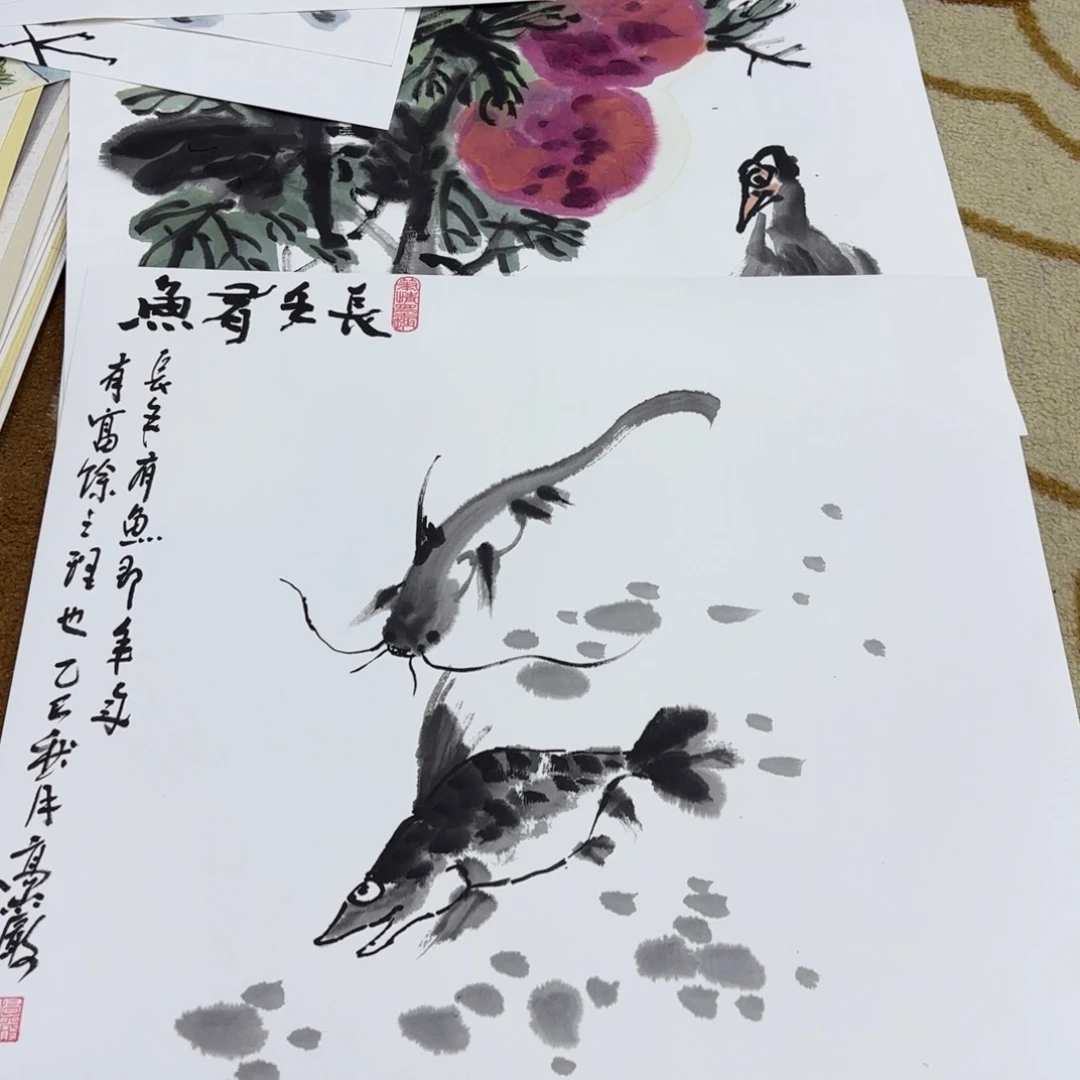 長年有魚
長年有魚即年
有富餘之理也乙巳秋月高